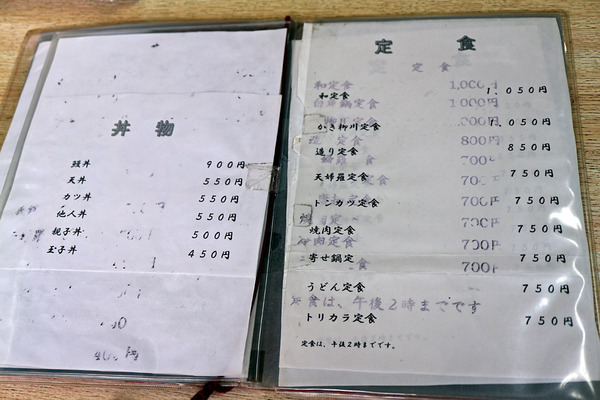 丼 物
鰻丼 900円
天丼 550円
カツ丼 550円
他人丼 550円
親子丼 500円
玉子丼 450円
定 食
定 食
和定食 1,000円
和定食 1,050円
白丼鍋定食 1000円
かき柳川定食 1,050円
800円
造り定食 850円
700
天婦羅定食 750円
トンカツ定食 750円
焼肉定食 750円
肉定食 700円
寄せ鍋定 750円
食 700
うどん定食 750円
定食は、午後2時までです
トリカラ定食 750円
定食は、午後2時までです。